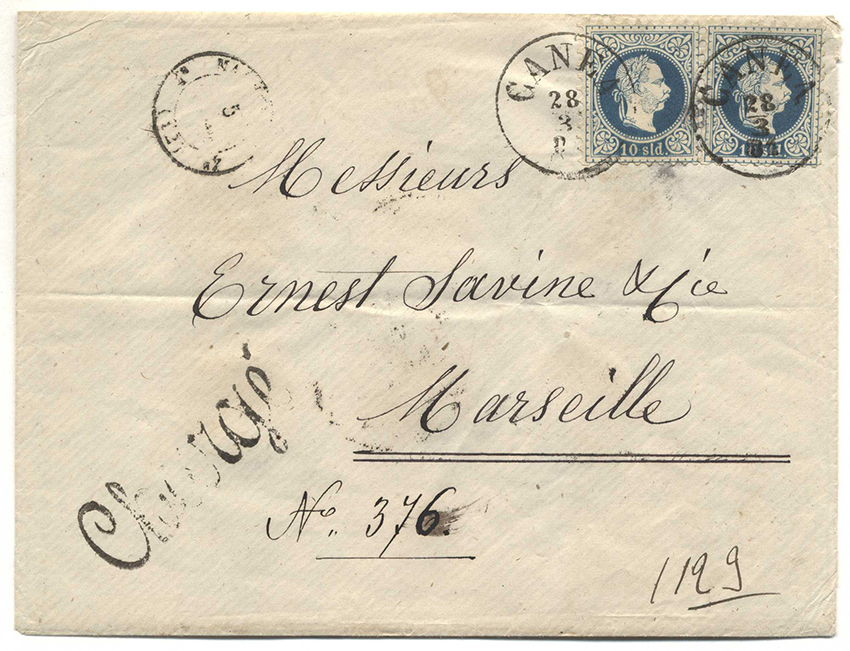 CANEA
28
3
10 sld.
CANEA
28
3
81
10 sld.
5
Messieurs
Ernest Savine & Cie
Marseille
Chargé
No. 376.
1129